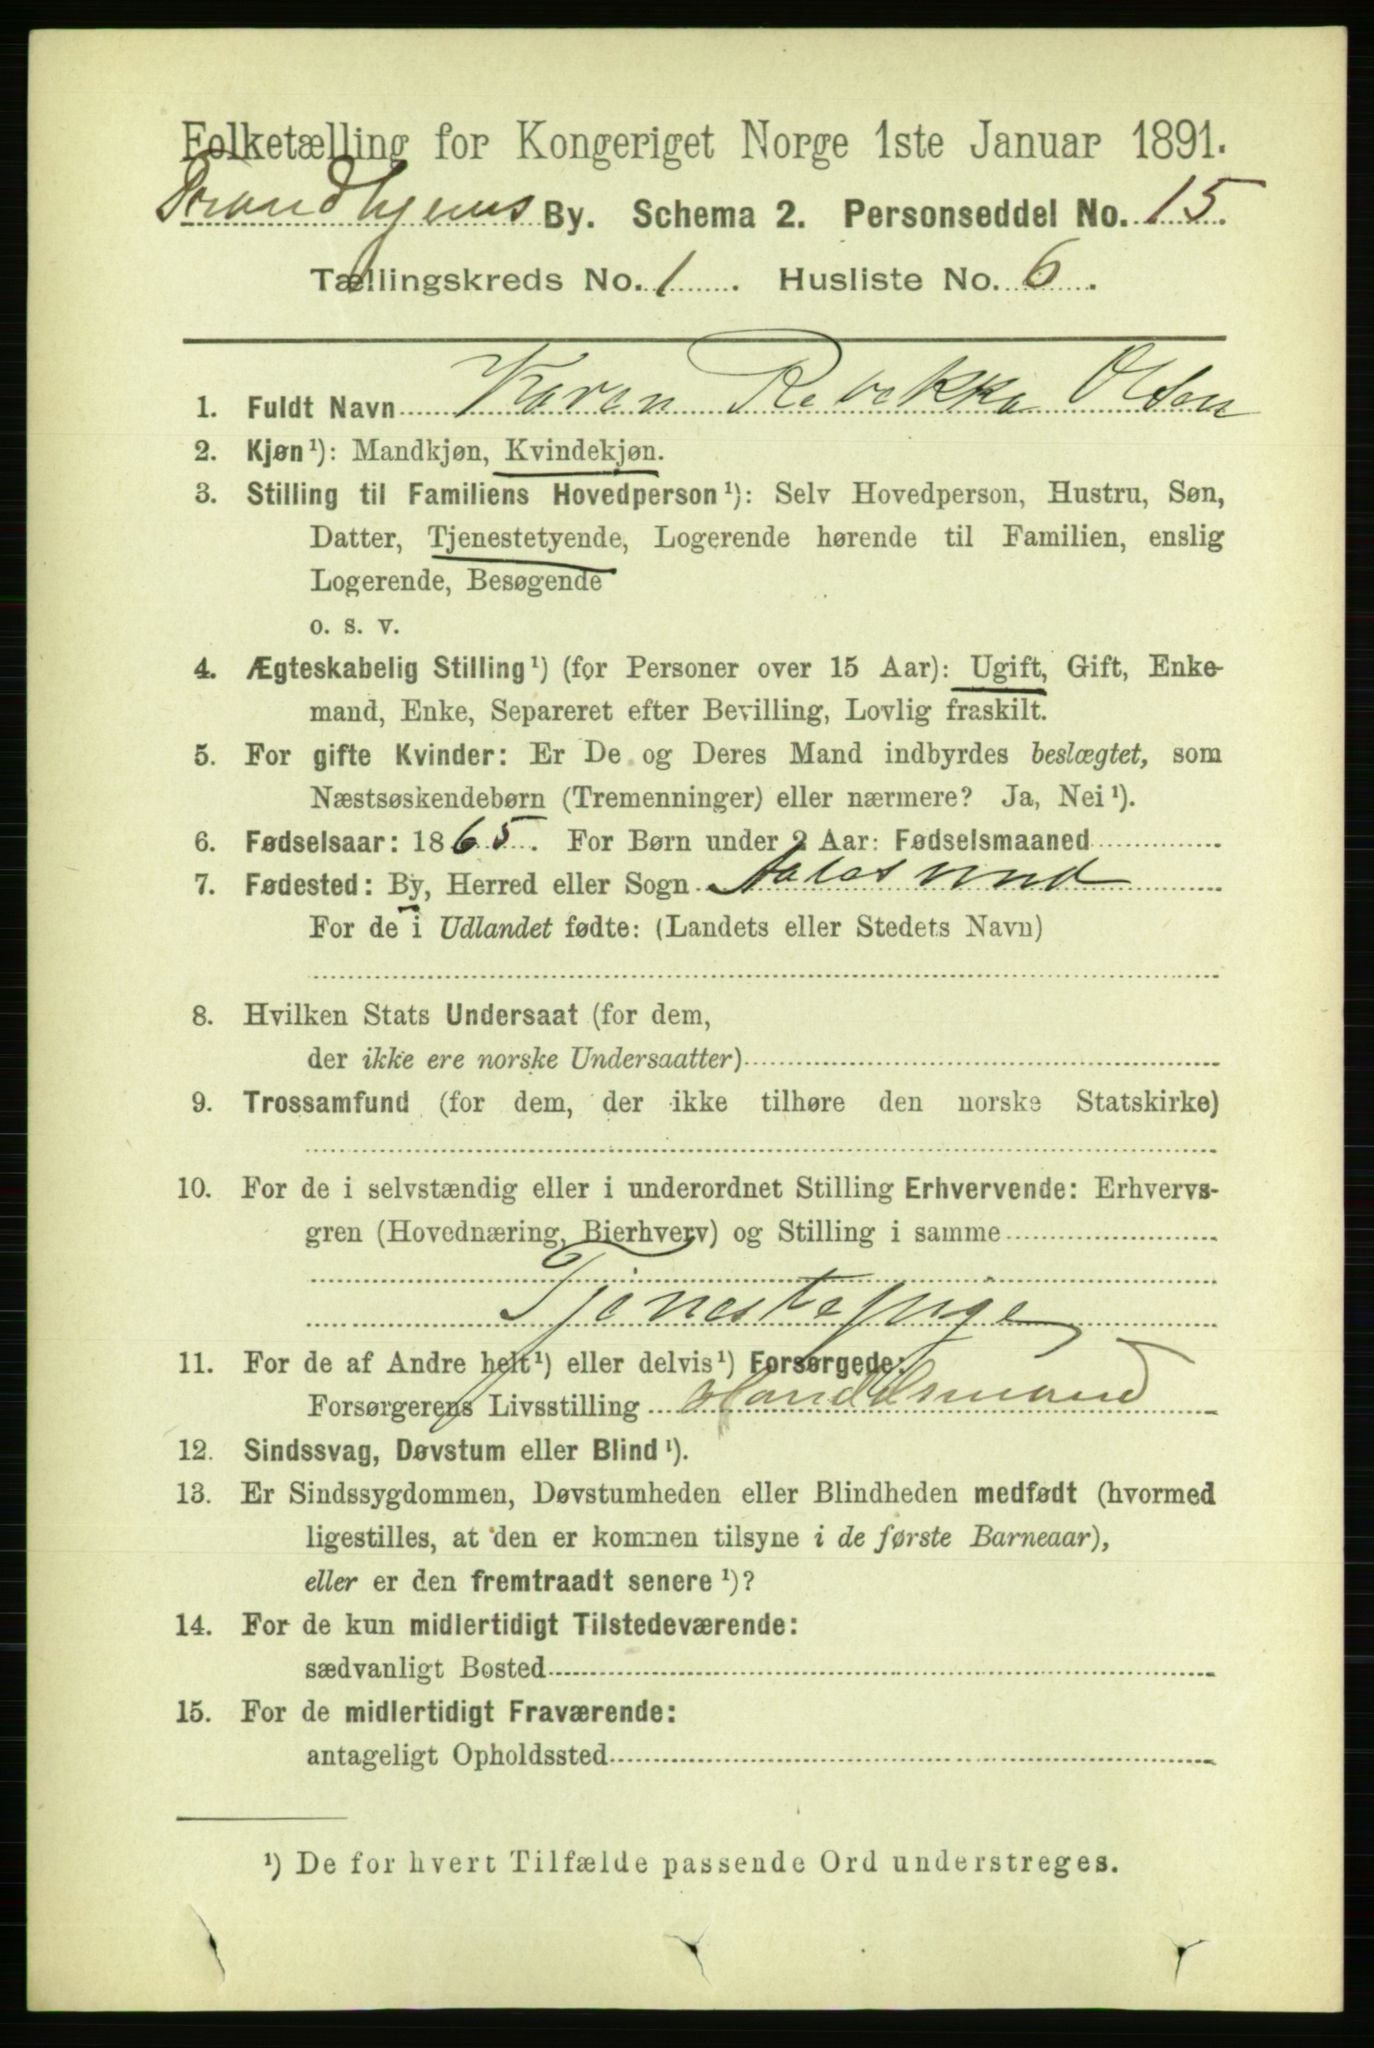 Folketælling for Kongeriget Norge 1ste Januar 1891.
Trondhjems By. Schema 2. Personseddel No. 15.
Tællingskreds No. 1. Husliste No. 6.
1. Fuldt Navn Karen Rebekka Olsen
2. Kjøn¹): Mandkjøn, Kvindekjøn.
3. Stilling til Familiens Hovedperson¹): Selv Hovedperson, Hustru, Søn,
Datter, Tjenestetyende, Logerende hørende til Familien, enslig
Logerende, Besøgende
o. s. v.
4. Ægteskabelig Stilling¹) (for Personer over 15 Aar): Ugift, Gift, Enke-
mand, Enke, Separeret efter Bevilling, Lovlig fraskilt.
5. For gifte Kvinder: Er De og Deres Mand indbyrdes beslægtet, som
Næstsøskendebørn (Tremenninger) eller nærmere? Ja, Nei¹).
6. Fødselsaar: 1865. For Børn under 2 Aar: Fødselsmaaned
7. Fødested: By, Herred eller Sogn Aalesund
For de i Udlandet fødte: (Landets eller Stedets Navn)
8. Hvilken Stats Undersaat (for dem,
der ikke ere norske Undersaatter)
9. Trossamfund (for dem, der ikke tilhøre den norske Statskirke)
10. For de i selvstændig eller i underordnet Stilling Erhvervende: Erhvervs-
gren (Hovednæring, Bierhverv) og Stilling i samme
Tjenestepige
11. For de af Andre helt¹) eller delvis¹) Forsørgede:
Forsørgerens Livsstilling Handelsmand
12. Sindssvag, Døvstum eller Blind¹).
13. Er Sindssygdommen, Døvstumheden eller Blindheden medfødt (hvormed
ligestilles, at den er kommen tilsyne i de første Barneaar),
eller er den fremtraadt senere¹)?
14. For de kun midlertidigt Tilstedeværende:
sædvanligt Bosted
15. For de midlertidigt Fraværende:
antageligt Opholdssted
¹) De for hvert Tilfælde passende Ord understreges.